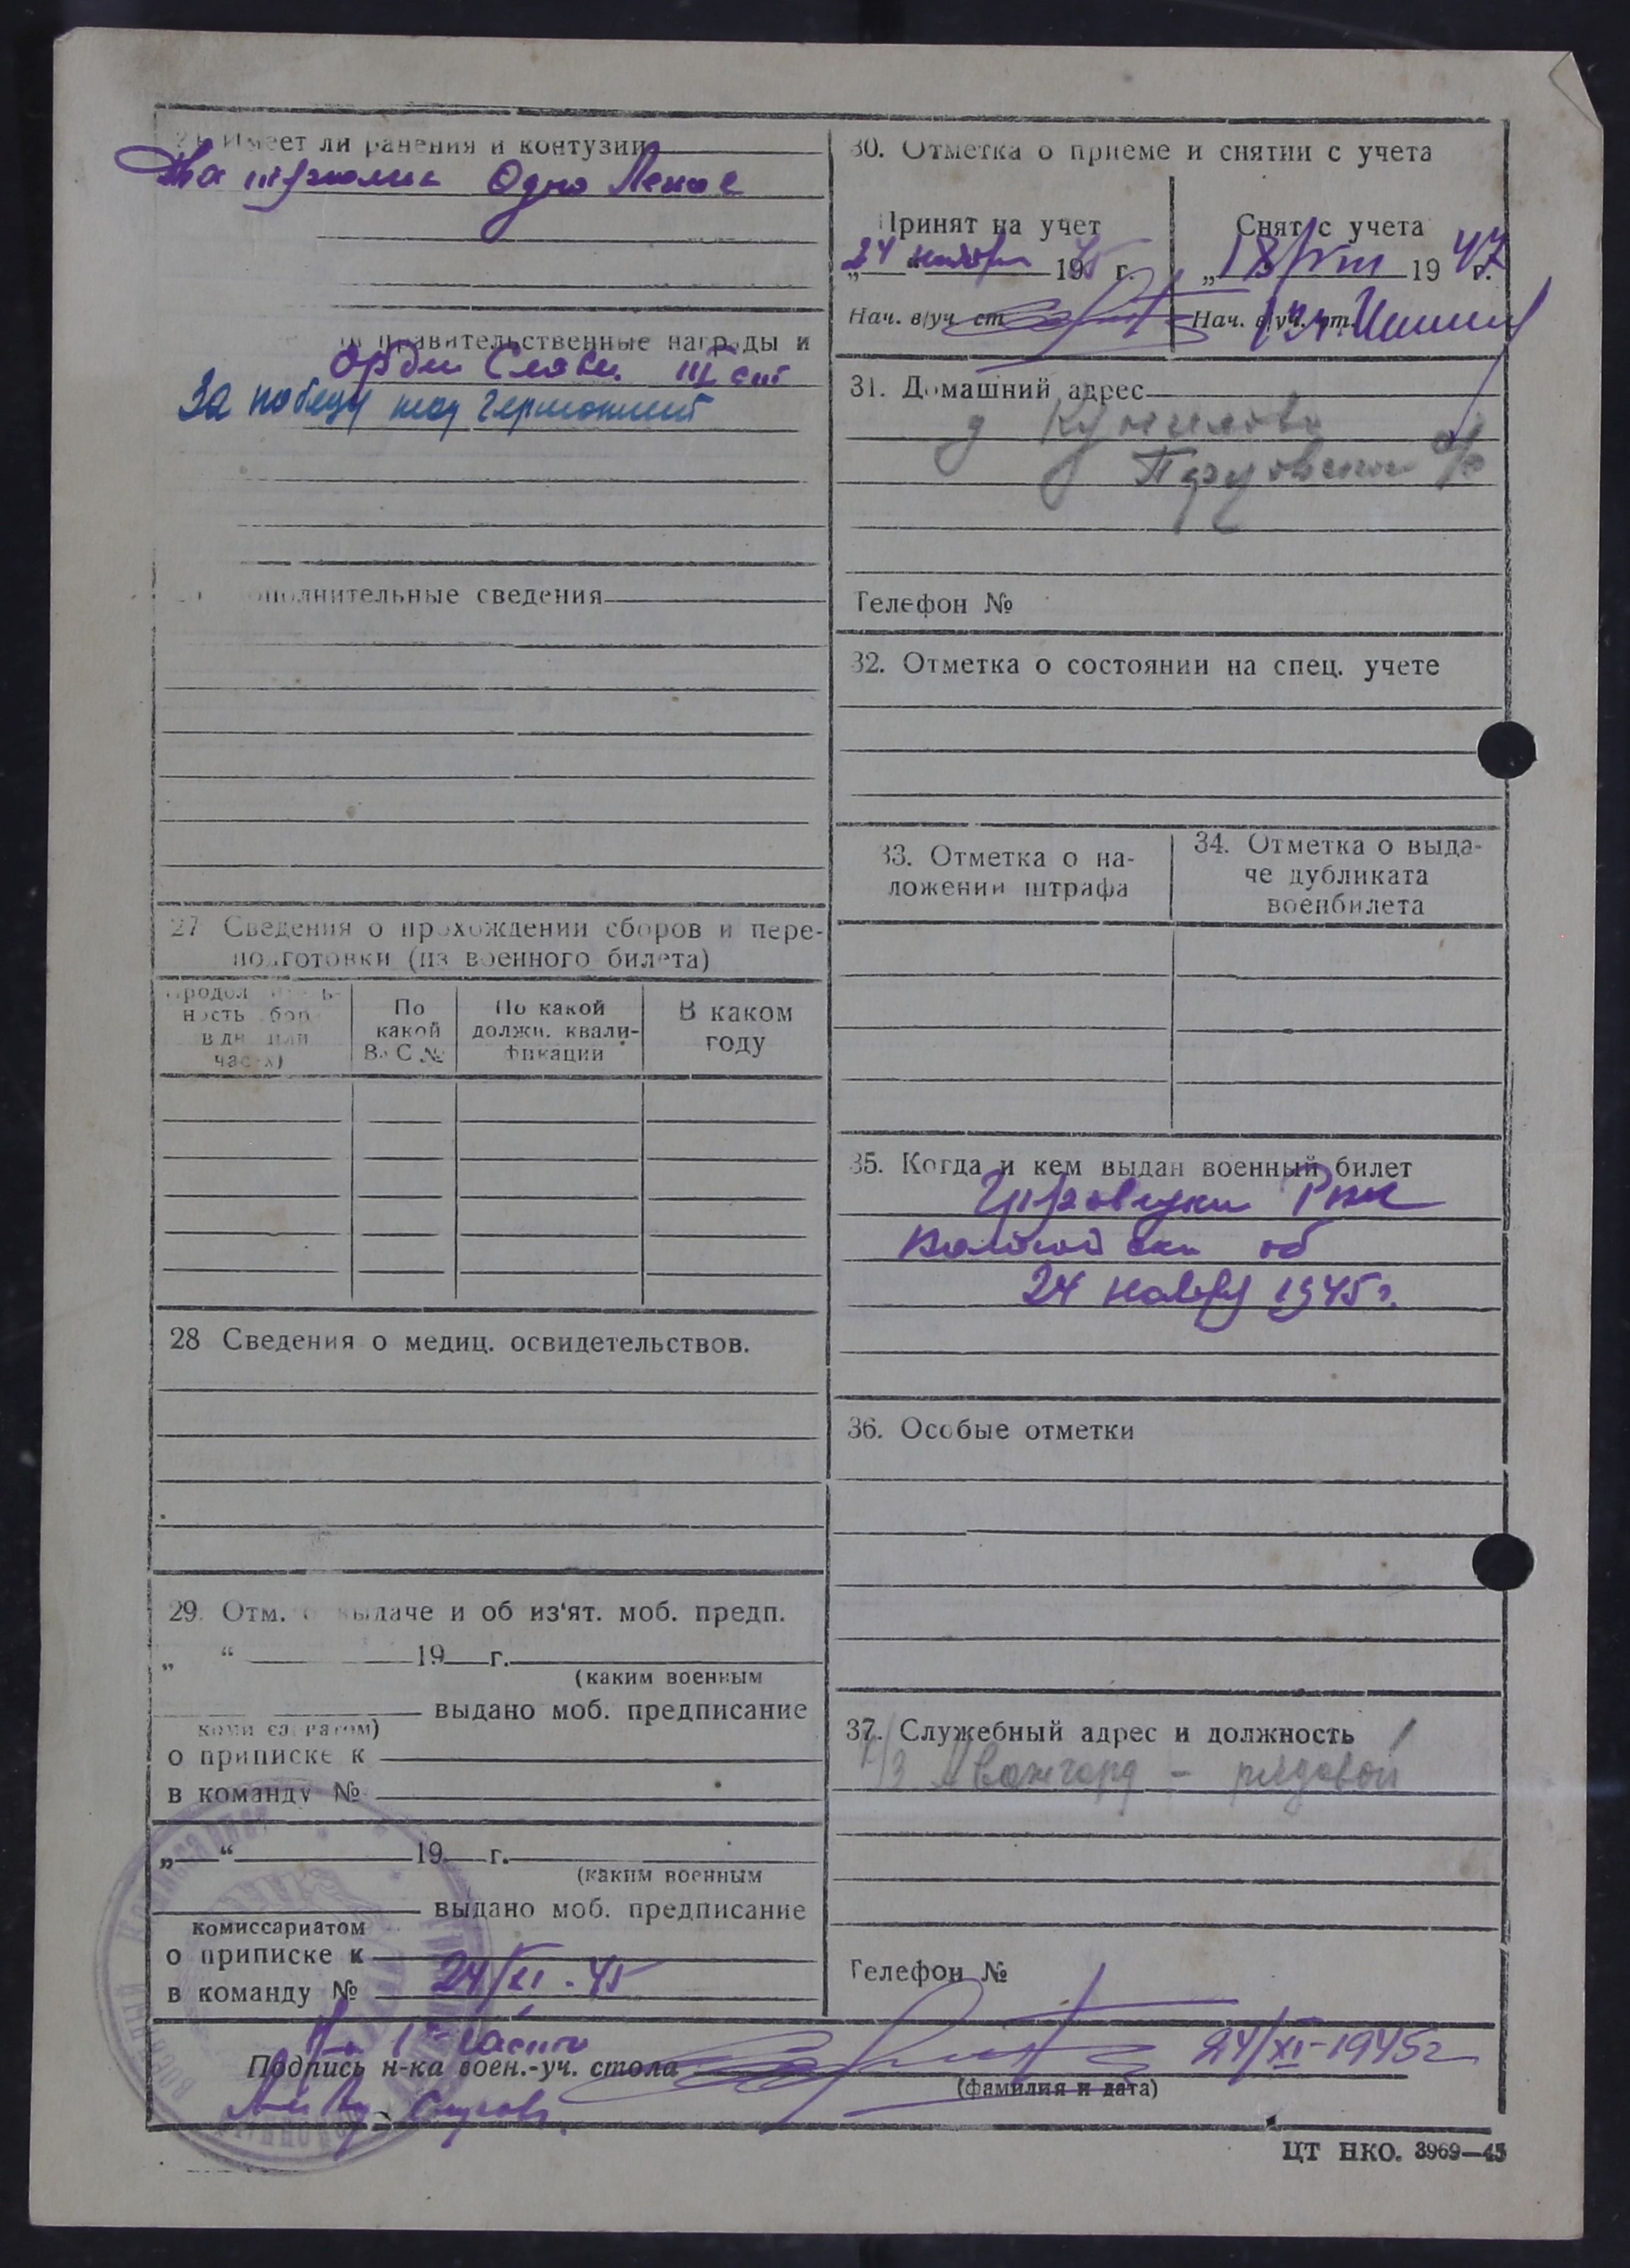 Имеет ли ранения и контузии
Одно Легкое
правительственные награды и
Орден Славы III ст
За победу над германией
дополнительные сведения
27 Сведения о прохождении сборов и пере-
подготовки (из военного билета)
Продолжитель-
ность сбор
в дн или
часах)
По
какой
ВУС №
По какой
должн. квали-
фикации
В каком
году
28 Сведения о медиц. освидетельствов.
29. Отм. о выдаче и об из'ят. моб. предп.
„ “ 19 г.
(каким военным
выдано моб. предписание
комиссариатом)
о приписке к
в команду №
„ “ 19 г.
(каким военным
выдано моб. предписание
комиссариатом
о приписке к
в команду № 24/XI-45
1 части
Подпись н-ка воен.-уч. стола 24/XI-1945г
(фамилия и дата)
30. Отметка о приеме и снятии с учета
Принят на учет
„24 ноября 1945 г.
Нач. в/уч. ст.
Снят с учета
„18/VIII 1947 г.
Нач. в/уч. ст.
31. Домашний адрес
д
с/с
Телефон №
32. Отметка о состоянии на спец. учете
33. Отметка о на-
ложении штрафа
34. Отметка о выда-
че дубликата
военбилета
35. Когда и кем выдан военный билет
РВК
об
24 ноябр 1945г.
36. Особые отметки
37. Служебный адрес и должность
к/з Авангард - рядовой
Телефон №
ЦТ НКО. 3969—45